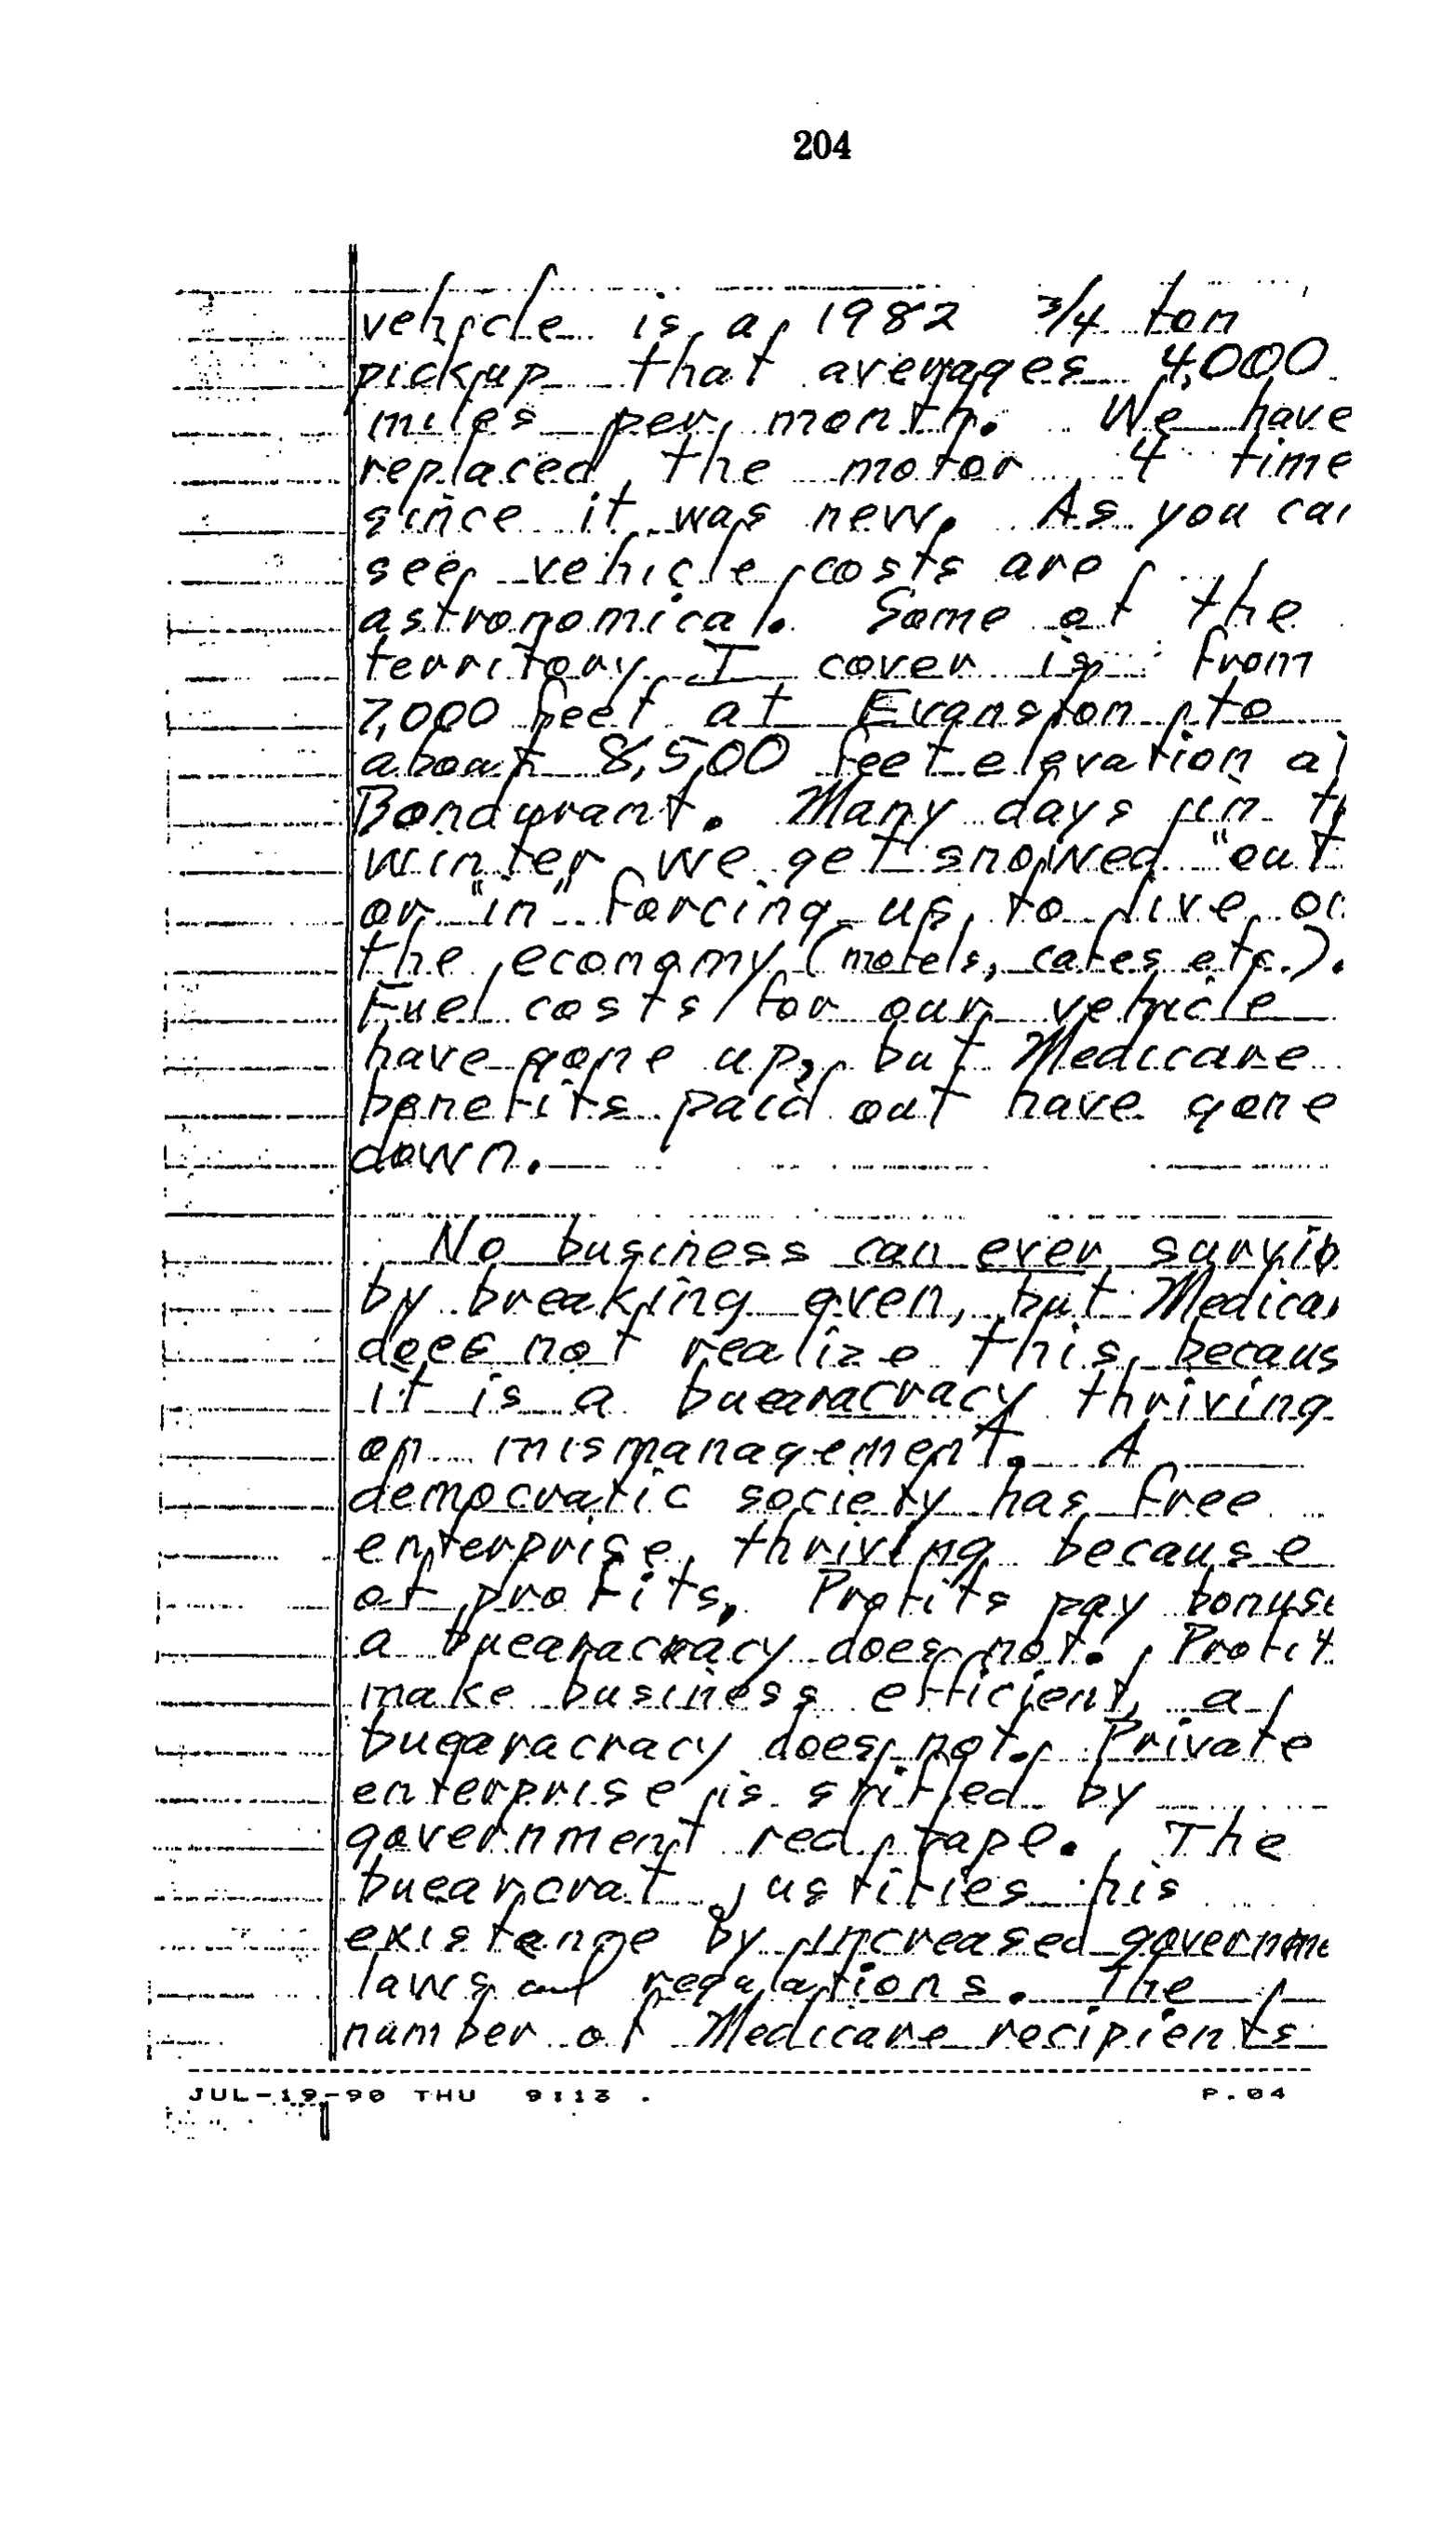 204
vehicle is a 1982 3/4 ton
pickup that averages 4,000
miles per month. We have
replaced the motor 4 time
since it was new. As you can
see, vehicle costs are
astronomical. Some of the
territory I cover is from
7,000 feet at Evanston to
about 8,500 feet elevation at
Bondurant. Many days in th
winter we get snowed "out"
or "in" forcing us to live on
the economy (motels, cafes etc.).
Fuel costs for our vehicle
have gone up, but Medicare
benefits paid out have gone
down.
No business can ever surviv
by breaking even, but Medicar
does not realize this, becaus
it is a buearacracy thriving
on mismanagement. A
democratic society has free
enterprise thriving because
of profits. Profits pay bonuse
a buearacracy does not. Profit
make business efficient, a
buearacracy does not. Private
enterprise is stifled by
government red tape. The
buearcrat justifies his
existance by increased governme
laws and regulations. The
number of Medicare recipients
JUL-19-90 THU 9:13 P.04